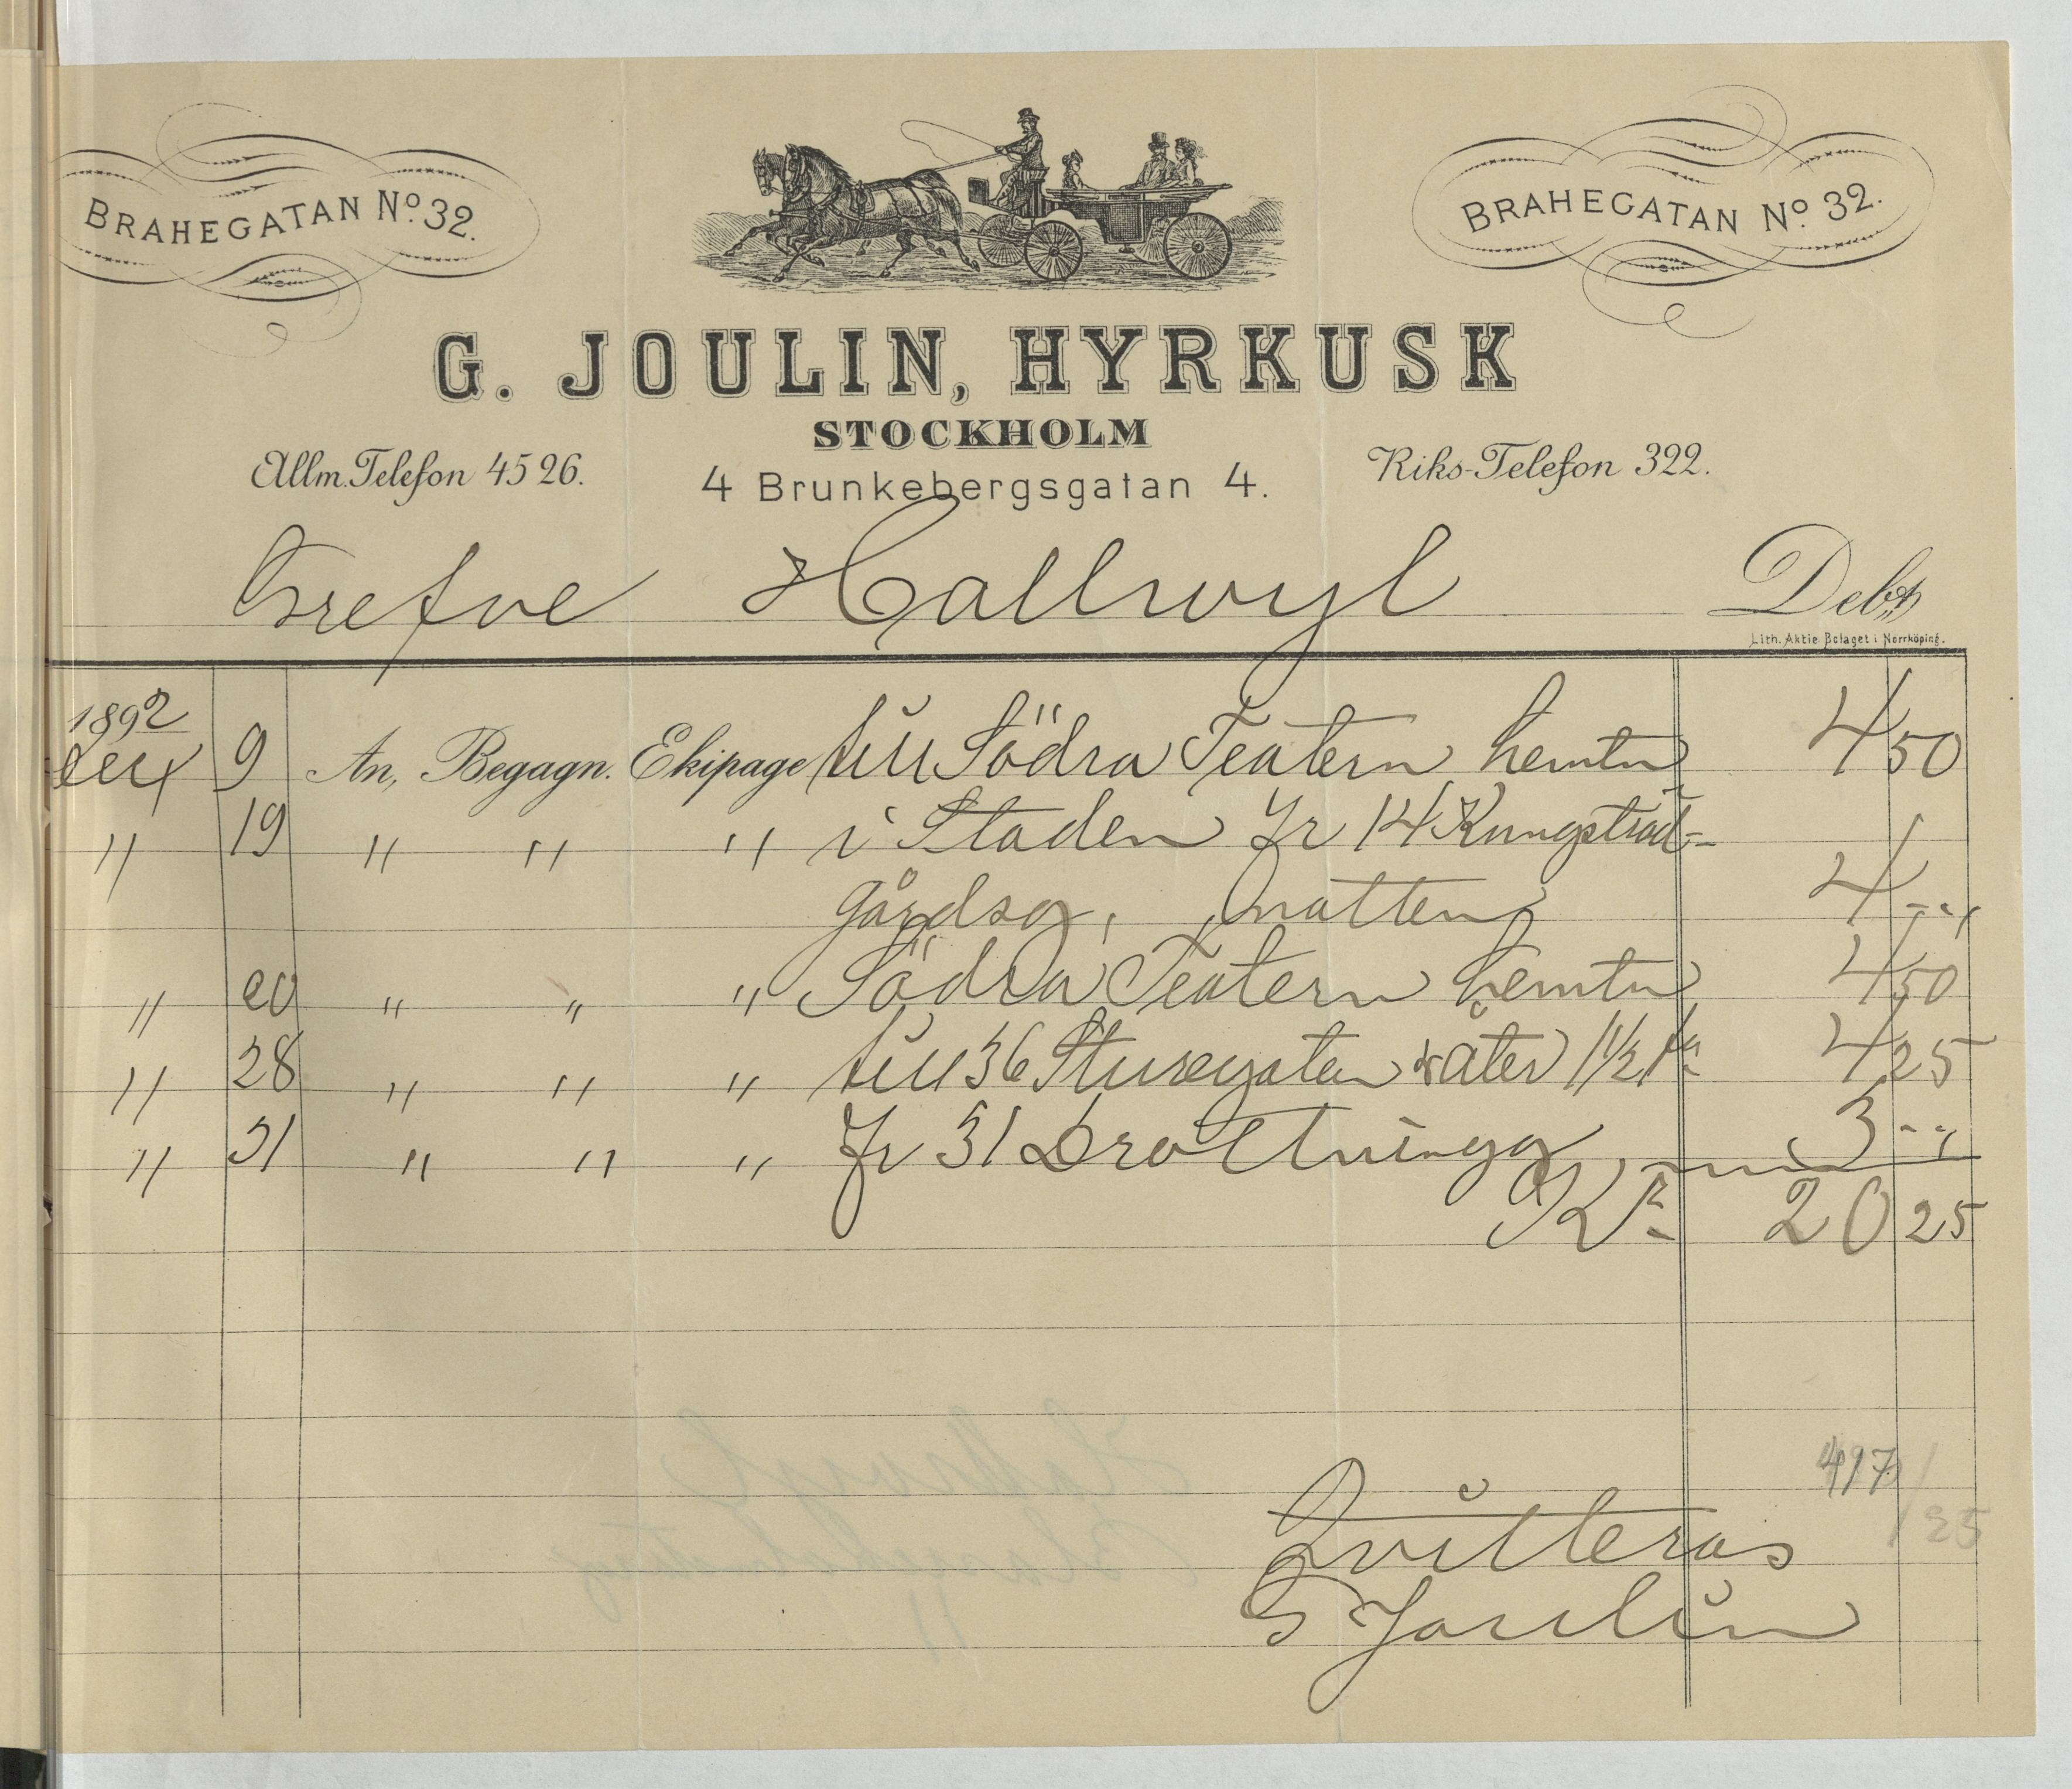 BRAHEGATAN No. 32.
BRAHEGATAN No 32.
G. JOULIN, HYRKUSK
STOCKHOLM
Allm. Telefon 4526.
4 Brunkebergsgatan 4.
Riks-Telefon 322.
Grefve Hallwyl Debet
Lith. Aktie Bolaget i Norrköping.
1892
9 An, Begagn. Ekipage till Södra Teatern hemtn 4 50
" 19 " " " i Staden fr 14 Kungsträd-
gårdsg, natten 4 --
" 20 " " " Södra Teatern hemtn 4 50
" 28 " " " till 36 Sturegatan & åter 1 1/2 4 25
" 31 " " " fr 31 Drottningg 3 --
Kr 20 25
417
25
Qvitteras
G Joulin